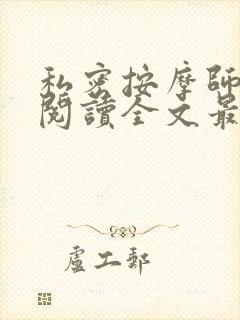 私密按摩師
閱讀全文最
盧工郵